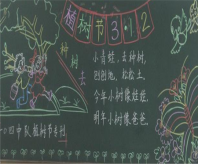 植树节3·12
植树
小青蛙,去种树,
刨刨地,松松土,
今年小树像娃娃,
明年小树像爸爸。
一〇四中队植树节专刊